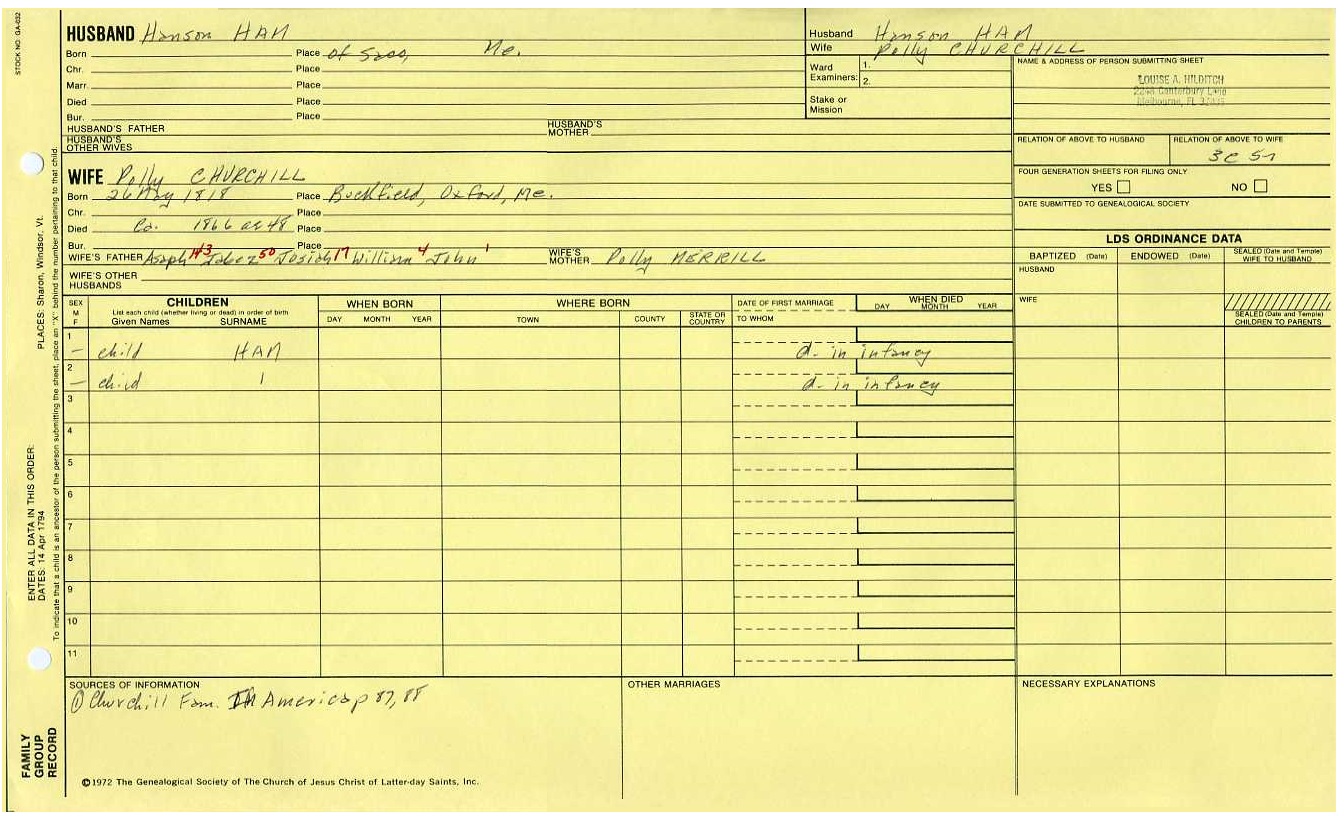 STOCK NO. GA-032
HUSBAND Hanson HAM
Born Place of Saco, Me.
Chr. Place
Marr. Place
Died Place
Bur. Place
HUSBAND'S FATHER HUSBAND'S MOTHER
HUSBAND'S OTHER WIVES
Husband Hanson HAM
Wife Polly CHURCHILL
Ward Examiners: 1.
2.
Stake or Mission
NAME & ADDRESS OF PERSON SUBMITTING SHEET
LOUISE A. HILDITCH
Canterbury Lane
Melbourne, FL
RELATION OF ABOVE TO HUSBAND RELATION OF ABOVE TO WIFE
3C 5
FOUR GENERATION SHEETS FOR FILING ONLY
YES NO
DATE SUBMITTED TO GENEALOGICAL SOCIETY
WIFE Polly CHURCHILL
Born 26 May 1818 Place Buckfield, Oxford, Me.
Chr. Place
Died Ca. 1866 ae 48 Place
Bur. Place
WIFE'S FATHER Asaph 143 Jabez 50 Josiah 17 William 4 John 1 WIFE'S MOTHER Polly MERRILL
WIFE'S OTHER HUSBANDS
LDS ORDINANCE DATA
BAPTIZED (Date) ENDOWED (Date) SEALED (Date and Temple) WIFE TO HUSBAND
HUSBAND
WIFE
SEALED (Date and Temple) CHILDREN TO PARENTS
SEX M F CHILDREN WHEN BORN WHERE BORN DATE OF FIRST MARRIAGE WHEN DIED
List each child (whether living or dead) in order of birth
Given Names SURNAME DAY MONTH YEAR TOWN COUNTY STATE OR COUNTRY TO WHOM DAY MONTH YEAR
1
– child HAM d. in infancy
2
– child | d. in infancy
3
4
5
6
7
8
9
10
11
SOURCES OF INFORMATION
① Churchill Fam. In America p 87, 88
OTHER MARRIAGES
NECESSARY EXPLANATIONS
©1972 The Genealogical Society of The Church of Jesus Christ of Latter-day Saints, Inc.
FAMILY GROUP RECORD
ENTER ALL DATA IN THIS ORDER:
DATES: 14 Apr 1794
PLACES: Sharon, Windsor, Vt.
To indicate that a child is an ancestor of the person submitting the sheet, place an "X" behind the number pertaining to that child.